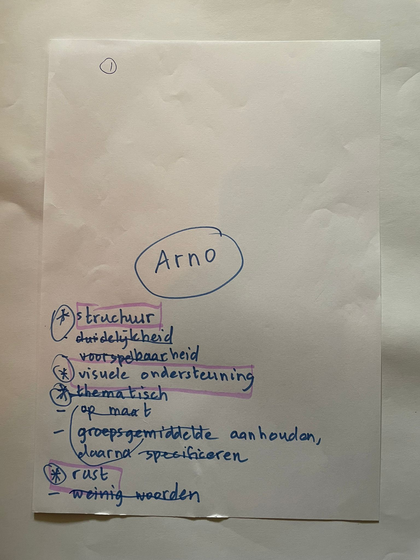 1
Arno
* structuur
- duidelijkheid
- voorspelbaarheid
* visuele ondersteuning
* thematisch
- op maat
- groepsgemiddelde aanhouden,
daarna specificeren
* rust
- weinig woorden